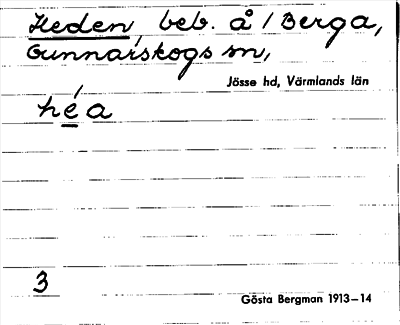 Heden, beb. å / Berga,
Gunnarskogs sn,
Jösse hd, Värmlands län
héa
3
Gösta Bergman 1913–14